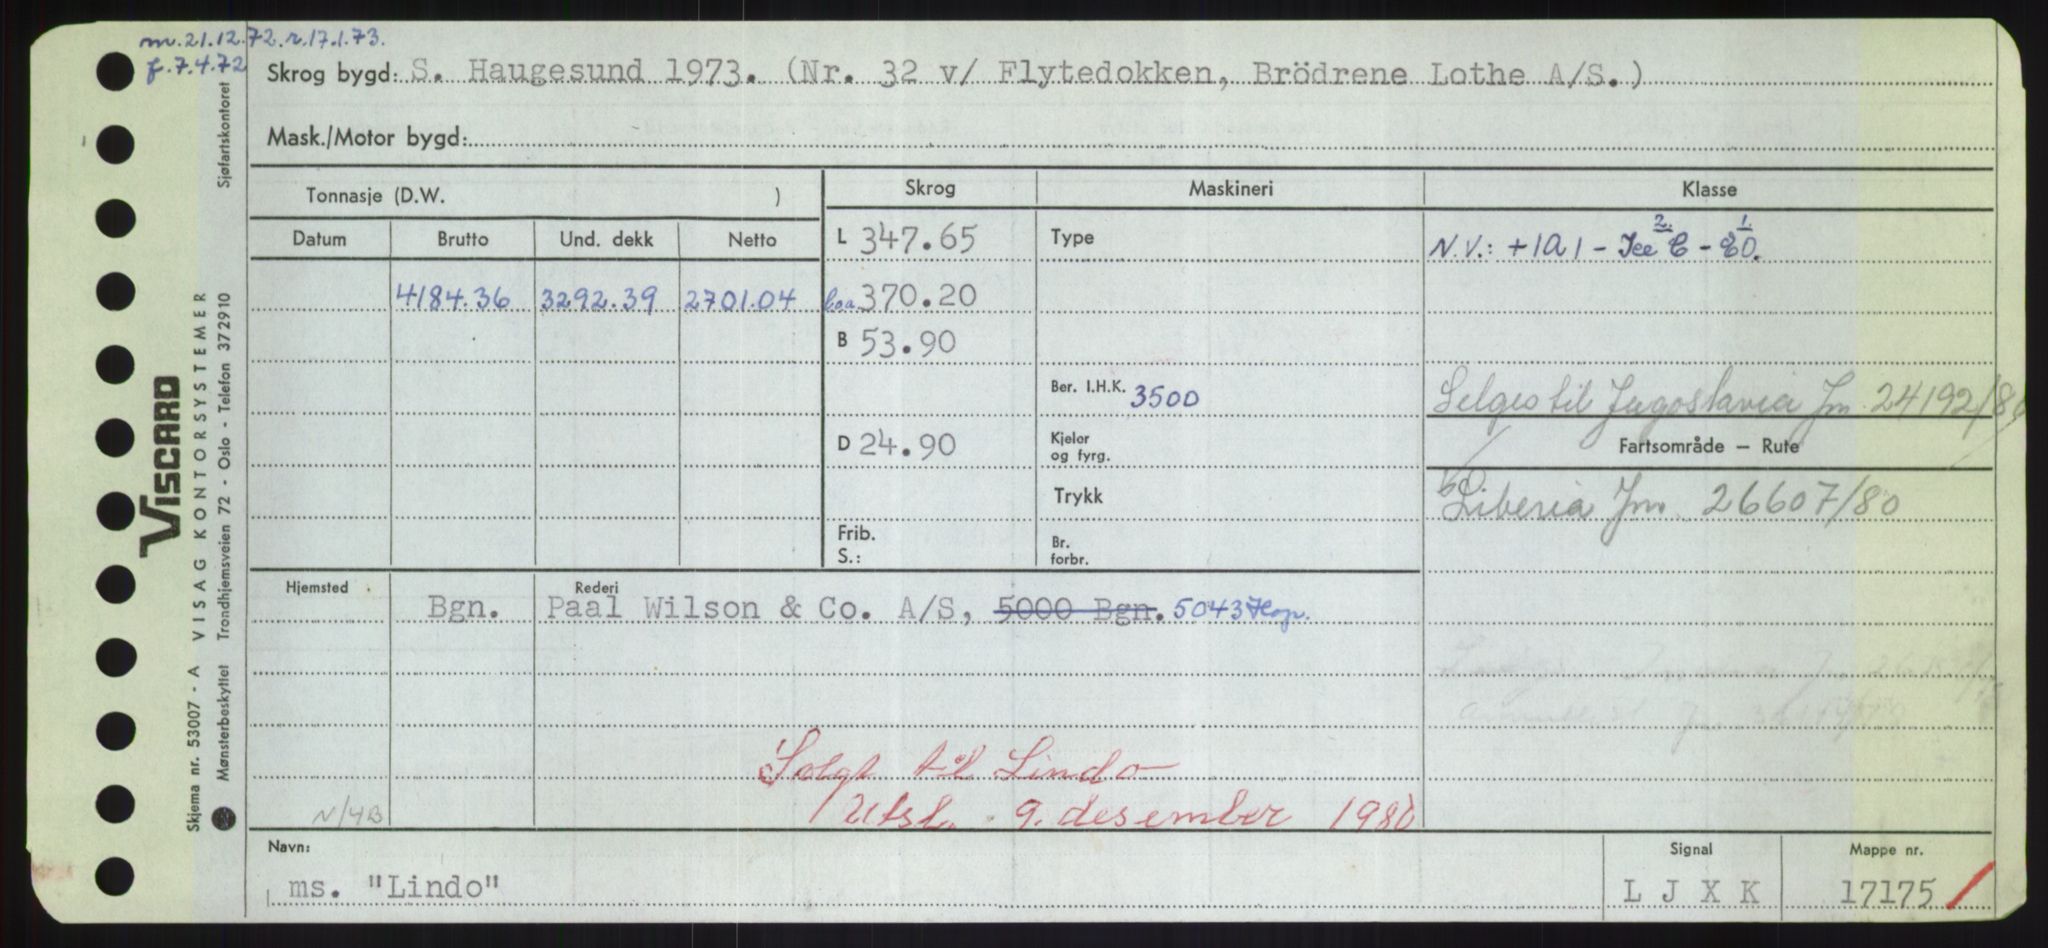 m. 21.12.72. r. 17.1.73.
f. 7.4.72
Skrog bygd: S. Haugesund 1973. (Nr. 32 v/ Flytedokken, Brödrene Lothe A/S.)
Mask./Motor bygd:
Tonnasje (D.W. )
Skrog Maskineri Klasse
Datum Brutto Und. dekk Netto
L 347.65 Type N.V.: +1A1 - Ice C - E0.
2. 1
4184.36 3292.39 2701.04 loa 370.20
B 53.90
Ber. I.H.K. 3500
Selges til Jugoslavia Jnr. 24192/80
D 24.90 Kjeler og fyrg.
Fartsområde — Rute
Trykk
Liberia Jnr. 26607/80
Frib. S.: Br. forbr.
Hjemsted Rederi
Bgn. Paal Wilson & Co. A/S, 5000 Bgn. 5043 Hop.
Solgt til Lindo
Utsl. 9. desember 1980
N/4B
Navn: Signal Mappe nr.
ms. "Lindo" L J X K 17175
VISCARD
VISAG KONTORSYSTEMER
Skjema nr. 53007 - A
Mønsterbeskyttet Trondhjemsveien 72 - Oslo - Telefon 372910 Sjøfartskontoret